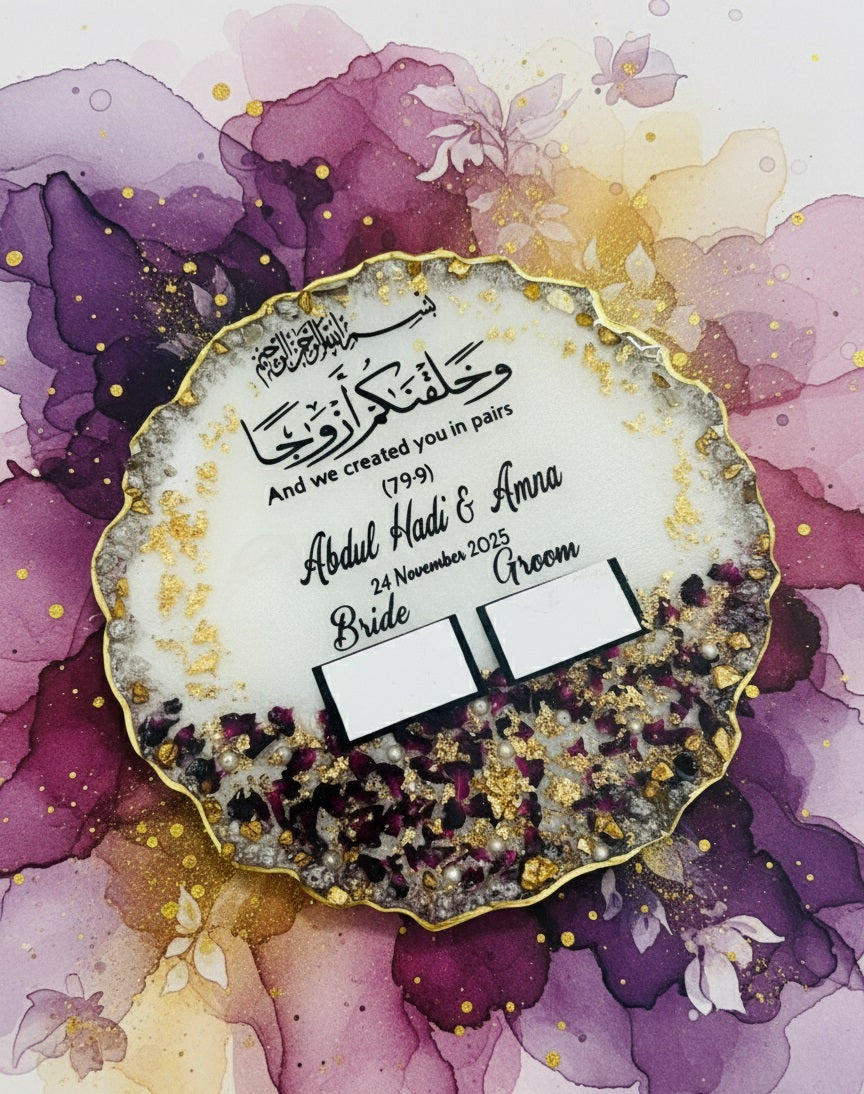 بسم الله الرحمن الرحيم
وَخَلَقْنَٰكُمْ أَزْوَٰجًا
And we created you in pairs
(79-9)
Abdul Hadi & Amna
24 November 2025
Bride
Groom